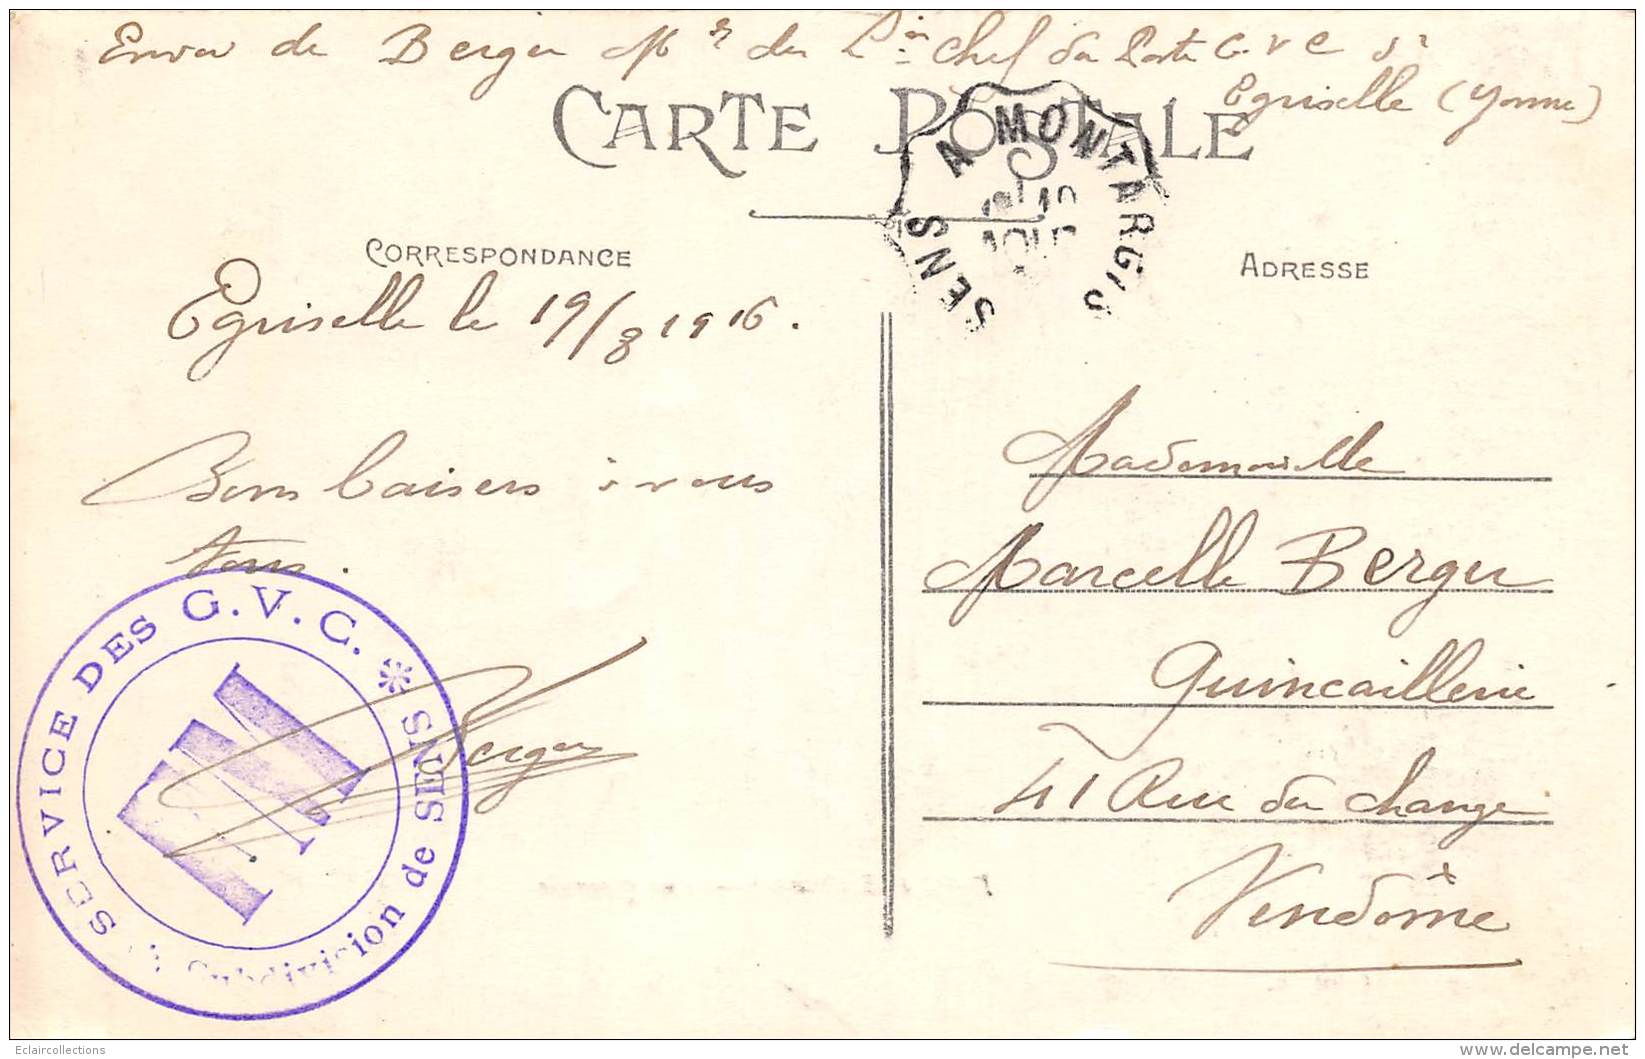 Envoi de Berger Mr des Lis chef du Poste G.V.C. Sr
Egriselle (Yonne)
CARTE POSTALE
SENS A MONTARGIS
10
AOUT
CORRESPONDANCE
ADRESSE
Egriselle le 19/8 1916.
Bons baisers à vous
tous.
Berger
SERVICE DES G.V.C. * Subdivision de SENS
Mademoiselle
Marcelle Berger
Quincaillerie
41 Rue du Change
Vendôme
Eclaircollections
delcampe.net